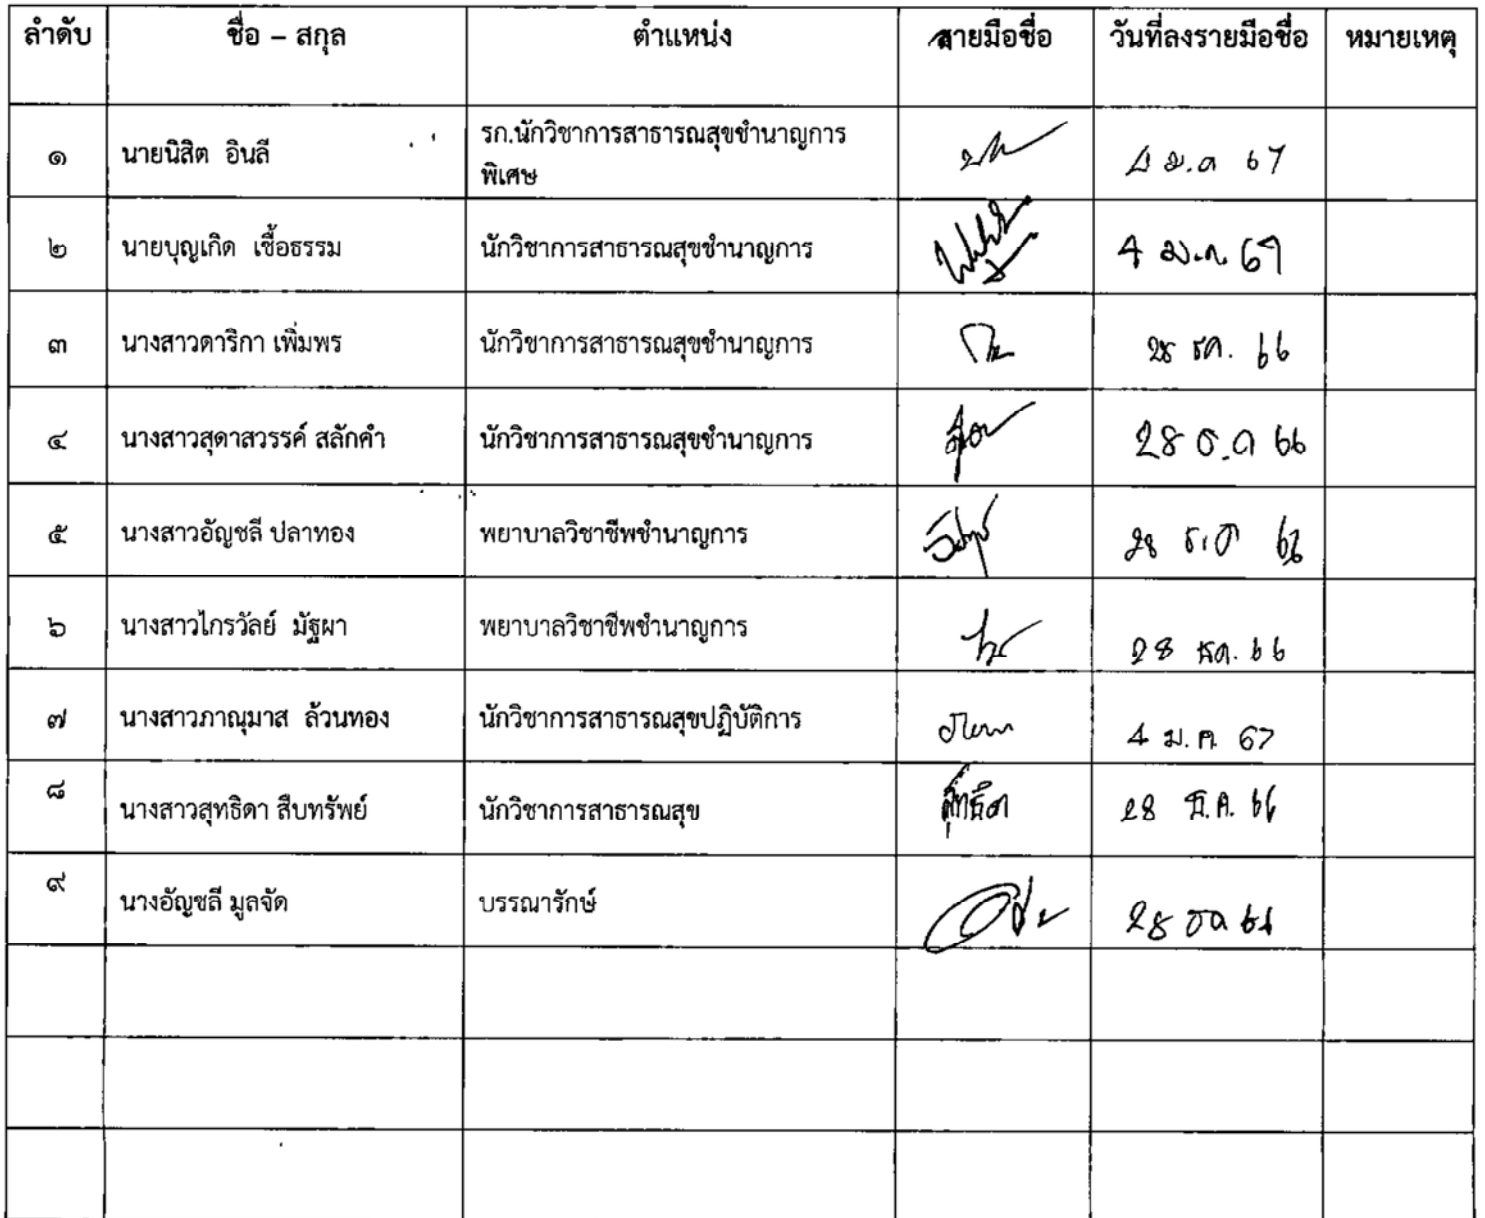 ลำดับ ชื่อ – สกุล ตำแหน่ง ลายมือชื่อ วันที่ลงรายมือชื่อ หมายเหตุ
๑ นายนิสิต อินลี รก.นักวิชาการสาธารณสุขชำนาญการ
พิเศษ 4 ม.ค 67
๒ นายบุญเกิด เชื้อธรรม นักวิชาการสาธารณสุขชำนาญการ 4 ม.ค. 67
๓ นางสาวดาริกา เพิ่มพร นักวิชาการสาธารณสุขชำนาญการ 28 ธค. 66
๔ นางสาวสุดาสวรรค์ สลักคำ นักวิชาการสาธารณสุขชำนาญการ 28 ธ.ค 66
๕ นางสาวอัญชลี ปลาทอง พยาบาลวิชาชีพชำนาญการ 28 ธ.ค
๖ นางสาวไกรวัลย์ มัฐผา พยาบาลวิชาชีพชำนาญการ 28 ธค. 66
๗ นางสาวภาณุมาส ล้วนทอง นักวิชาการสาธารณสุขปฏิบัติการ 4 ม.ค. 67
๘ นางสาวสุทธิดา สืบทรัพย์ นักวิชาการสาธารณสุข สุทธิดา 28 ธ.ค. 66
๙ นางอัญชลี มูลจัด บรรณารักษ์ 28 ธค 66